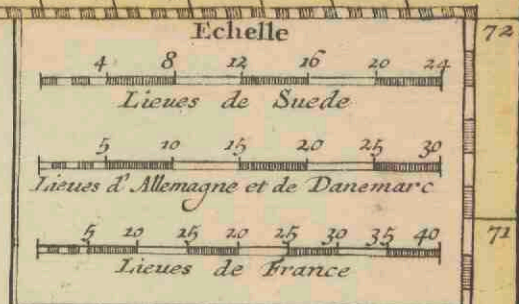 Echelle
72
4 8 12 16 20 24
Lieues de Suede
5 10 15 20 25 30
Lieues d'Allemagne et de Danemarc
71
5 10 15 20 25 30 35 40
Lieues de France